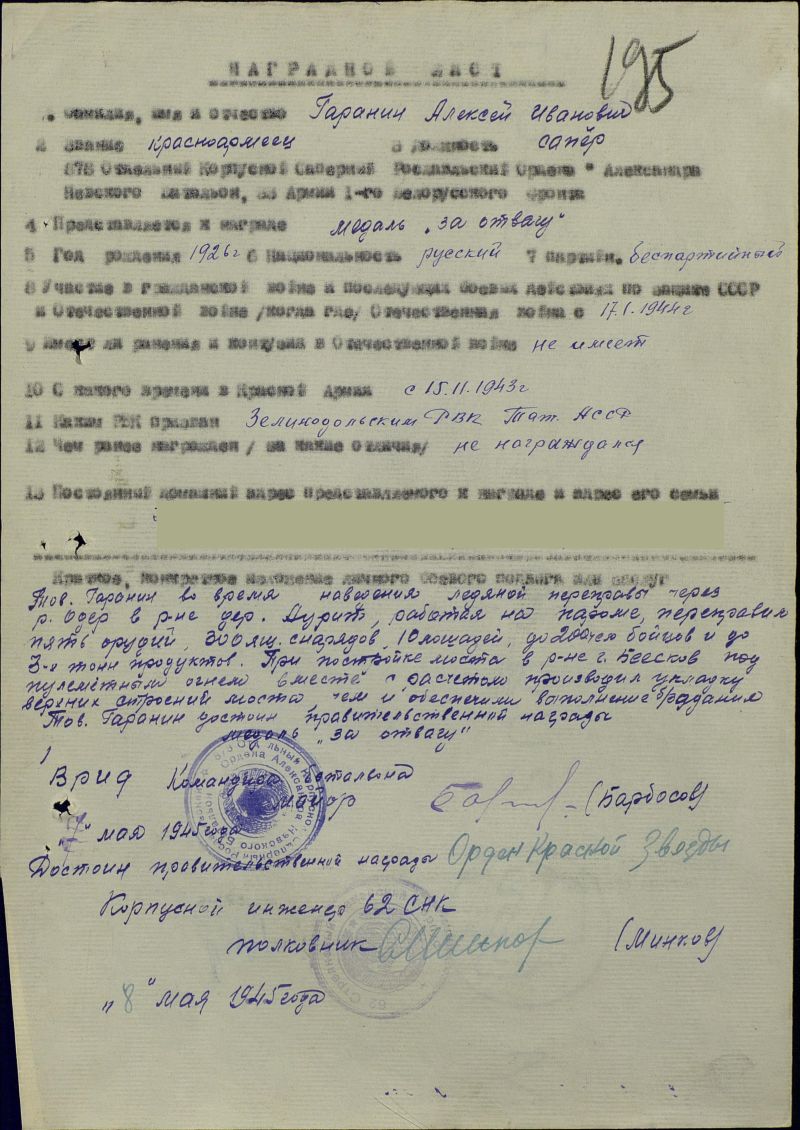 195
НАГРАДНОЙ ЛИСТ
1. Фамилия, имя и отчество Гаранин Алексей Иванович
2 Звание красноармеец 3 Должность сапёр
Отдельный Корпусной Саперный Рославльский Ордена " Александра
Невского Батальон, 33 Армии 1-го Белорусского Фронта
4 Представляется к награде медаль „за отвагу"
5 Год рождения 1926г 6 Национальность русский 7 партийн. беспартийный
8 Участие в гражданской войне и последующих боевых действиях по защите СССР
и Отечественной войне /когда где/ Отечественная война с 17.1.1944г
9 Имеет ли ранения и контузии в Отечественной войне не имеет
10 С какого времени в Красной Армии с 15.11.1943г
11 Каким РВК призван Зелинодольским РВК Тат. АССР
12 Чем ранее награжден / за какие отличия/ не награждался
13 Постоянной домашний адрес представляемого к награде и адрес его семьи
Краткое, конкретное изложение личного боевого подвига или заслуг
Тов. Гаранин во время наведения ледяной переправы через
р. Одер в р-не дер. Аурит, работая на пароме, переправил
пять орудий, 300 ящ. снарядов, 10 лошадей, до 200 чел бойцов и до
3-х тонн продуктов. При постройке моста в р-не г. Беесков под
пулеметным огнем вместе с расчетом производил укладку
верхних строений моста чем и обеспечили выполнение
Тов. Гаранин достоин правительственной награды
медаль „за отвагу"
Врид Командира батальона
майор (Барбосов)
„7" мая 1945 года
Достоин правительственной награды Орден Красной Звезды
Корпусной инженер 62 СНК
полковник (Минков)
„8" мая 1945 года